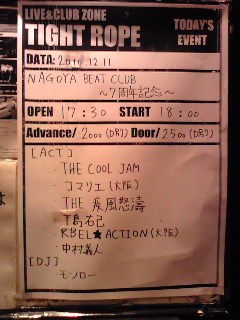 LIVE&CLUB ZONE
TIGHT ROPE
TODAY'S
EVENT
DATA: 2010.12.11
NAGOYA BEAT CLUB
~7周年記念~
OPEN 17:30 START 18:00
Advance/ 2000 (D別) Door/ 2500 (D別)
[ACT]
・THE COOL JAM
・コマリエ(大阪)
・THE 疾風怒濤
・下島右己
・REBEL★ACTION(大阪)
・中村義人
[DJ]
モンロー